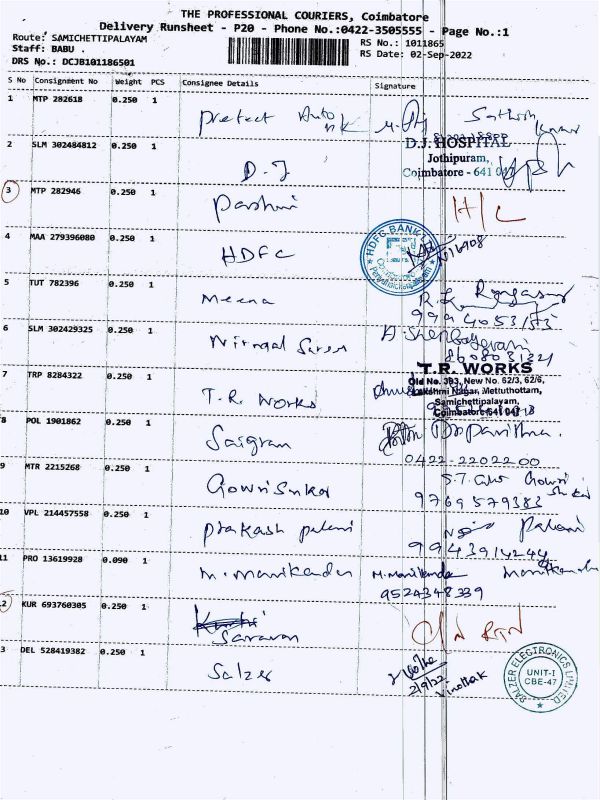 THE PROFESSIONAL COURIERS, Coimbatore
Delivery Runsheet - P20 - Phone No.:0422-3505555 - Page No.:1
Route: SAMICHETTIPALAYAM
RS No.: 1011865
Staff: BABU .
RS Date: 02-Sep-2022
DRS No.: DCJB101186501
S No Consignment No Weight PCS Consignee Details Signature
1 MTP 282618 0.250 1
Prefect Auto
2 SLM 302484812 0.250 1
D.J
D.J. HOSPITAL
Jothipuram,
Coimbatore - 641 047
3 MTP 282946 0.250 1
4 MAA 279396080 0.250 1
HDFC
HDFC BANK
5 TUT 782396 0.250 1
Meena
6 SLM 302429325 0.250 1
7 TRP 8284322 0.250 1
T.R. Works
T.R. WORKS
Old No. 393, New No. 62/3, 62/6,
Lakshmi Nagar, Mettuthottam,
Samichettipalayam,
Coimbatore-641 047
8 POL 1901862 0.250 1
Sairam
0422-2202200
9 MTR 2215268 0.250 1
GowriSankar
9769579383
10 VPL 214457558 0.250 1
Prakash Palani
Palani
11 PRO 13619928 0.090 1
M. Manikandan M. Manikanda
9524348339
12 KUR 693760305 0.250 1
Saravan
13 DEL 528419382 0.250 1
Salzer
2/9/22
SALZER ELECTRONICS LIMITED
UNIT-I
CBE-47